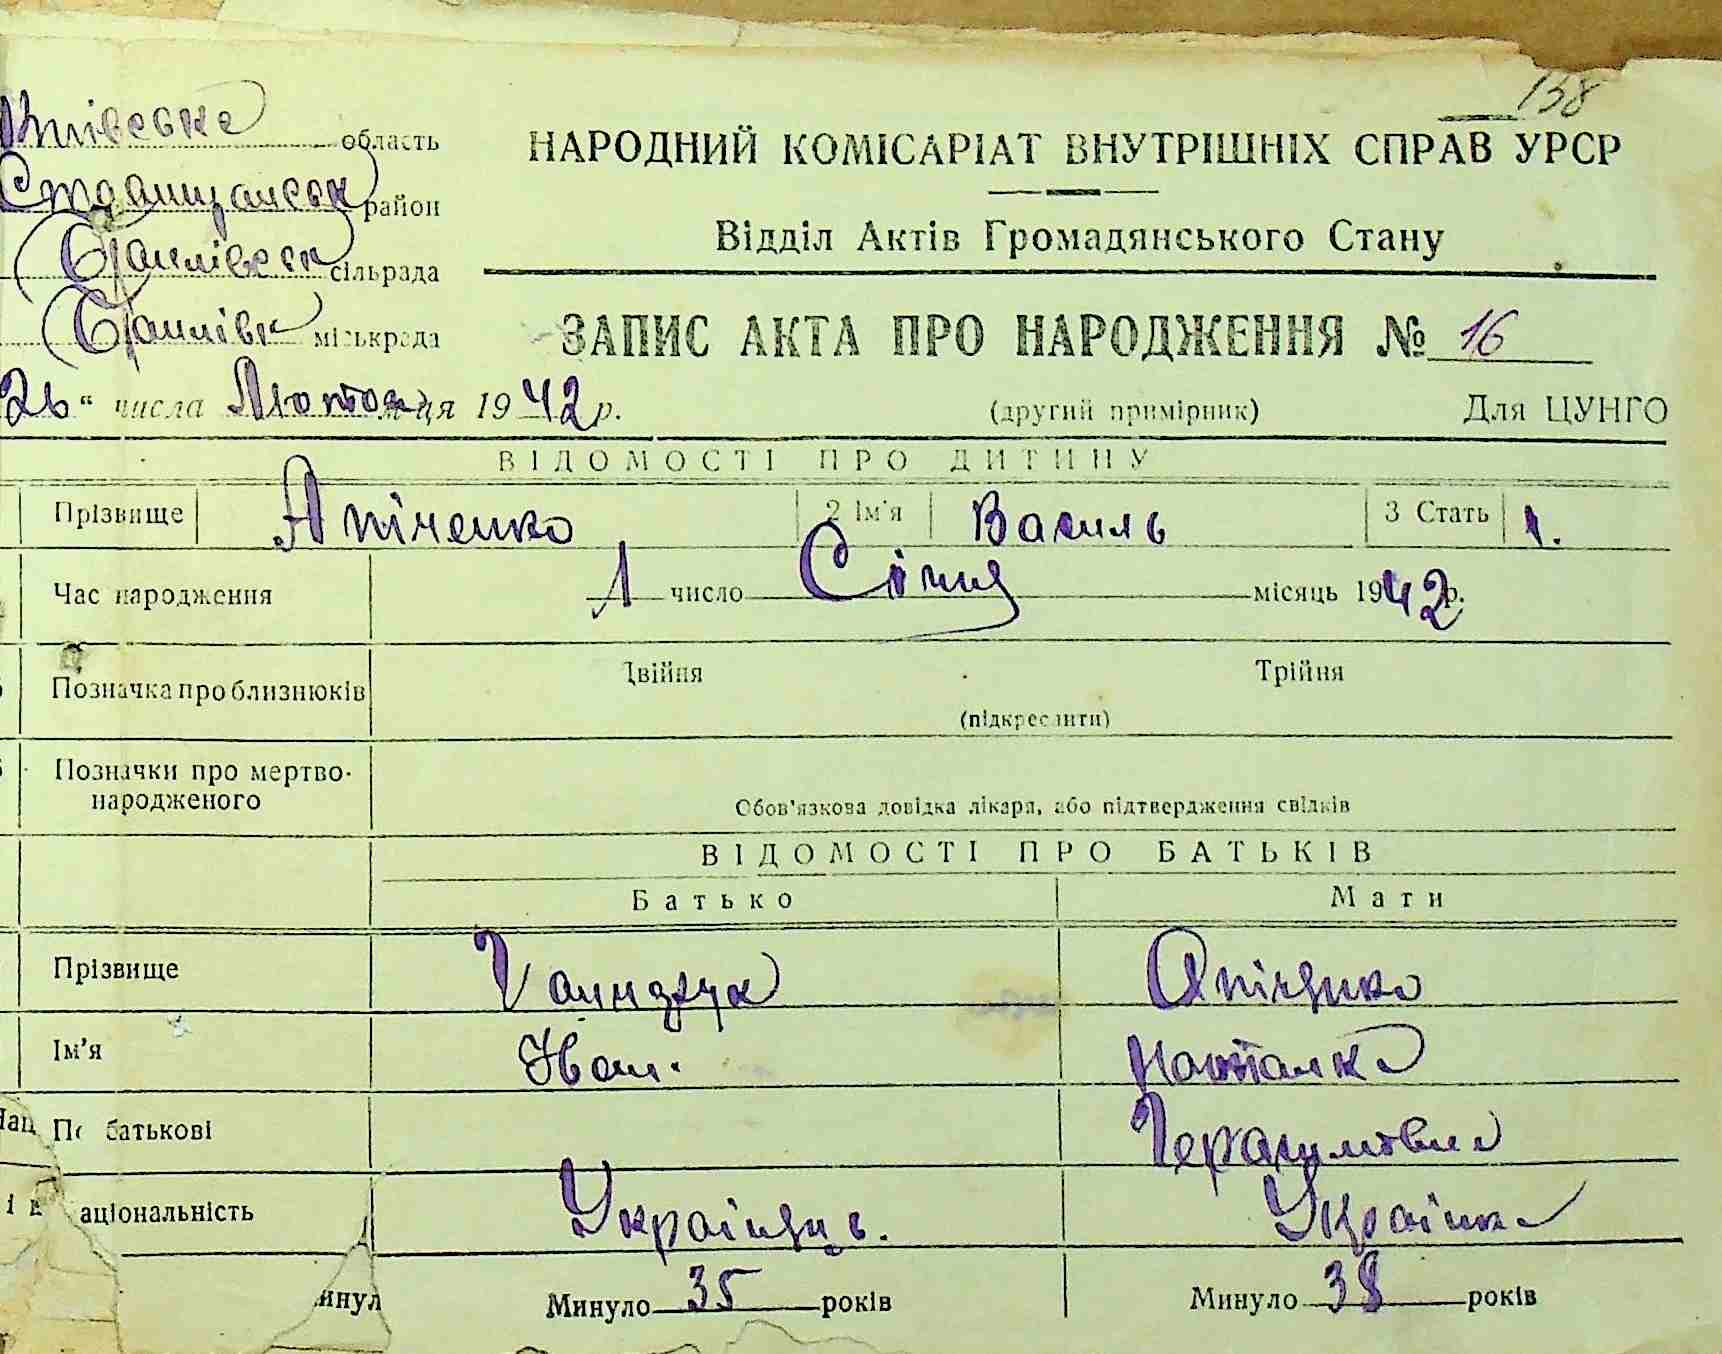 138
область
НАРОДНИЙ КОМІСАРІАТ ВНУТРІШНІХ СПРАВ УРСР
район
Відділ Актів Громадянського Стану
сільрада
міськрада
ЗАПИС АКТА ПРО НАРОДЖЕННЯ № 16
26 " числа Лютого м-ця 1942 р. (другий примірник) Для ЦУНГО
ВІДОМОСТІ ПРО ДИТИНУ
Прізвище Япіченко 2 Ім'я Василь 3 Стать 1.
Час народження 1 число Січня місяць 1942 р.
Позначка про близнюків Двійня Трійня
(підкреслити)
Позначки про мертво-
народженого
Обов'язкова довідка лікаря, або підтвердження свідків
ВІДОМОСТІ ПРО БАТЬКІВ
Батько Мати
Прізвище
Ім'я Іван. Наталка
По батькові Герасимовна
аціональність Українець. Українка
Минуло 35 років Минуло 38 років